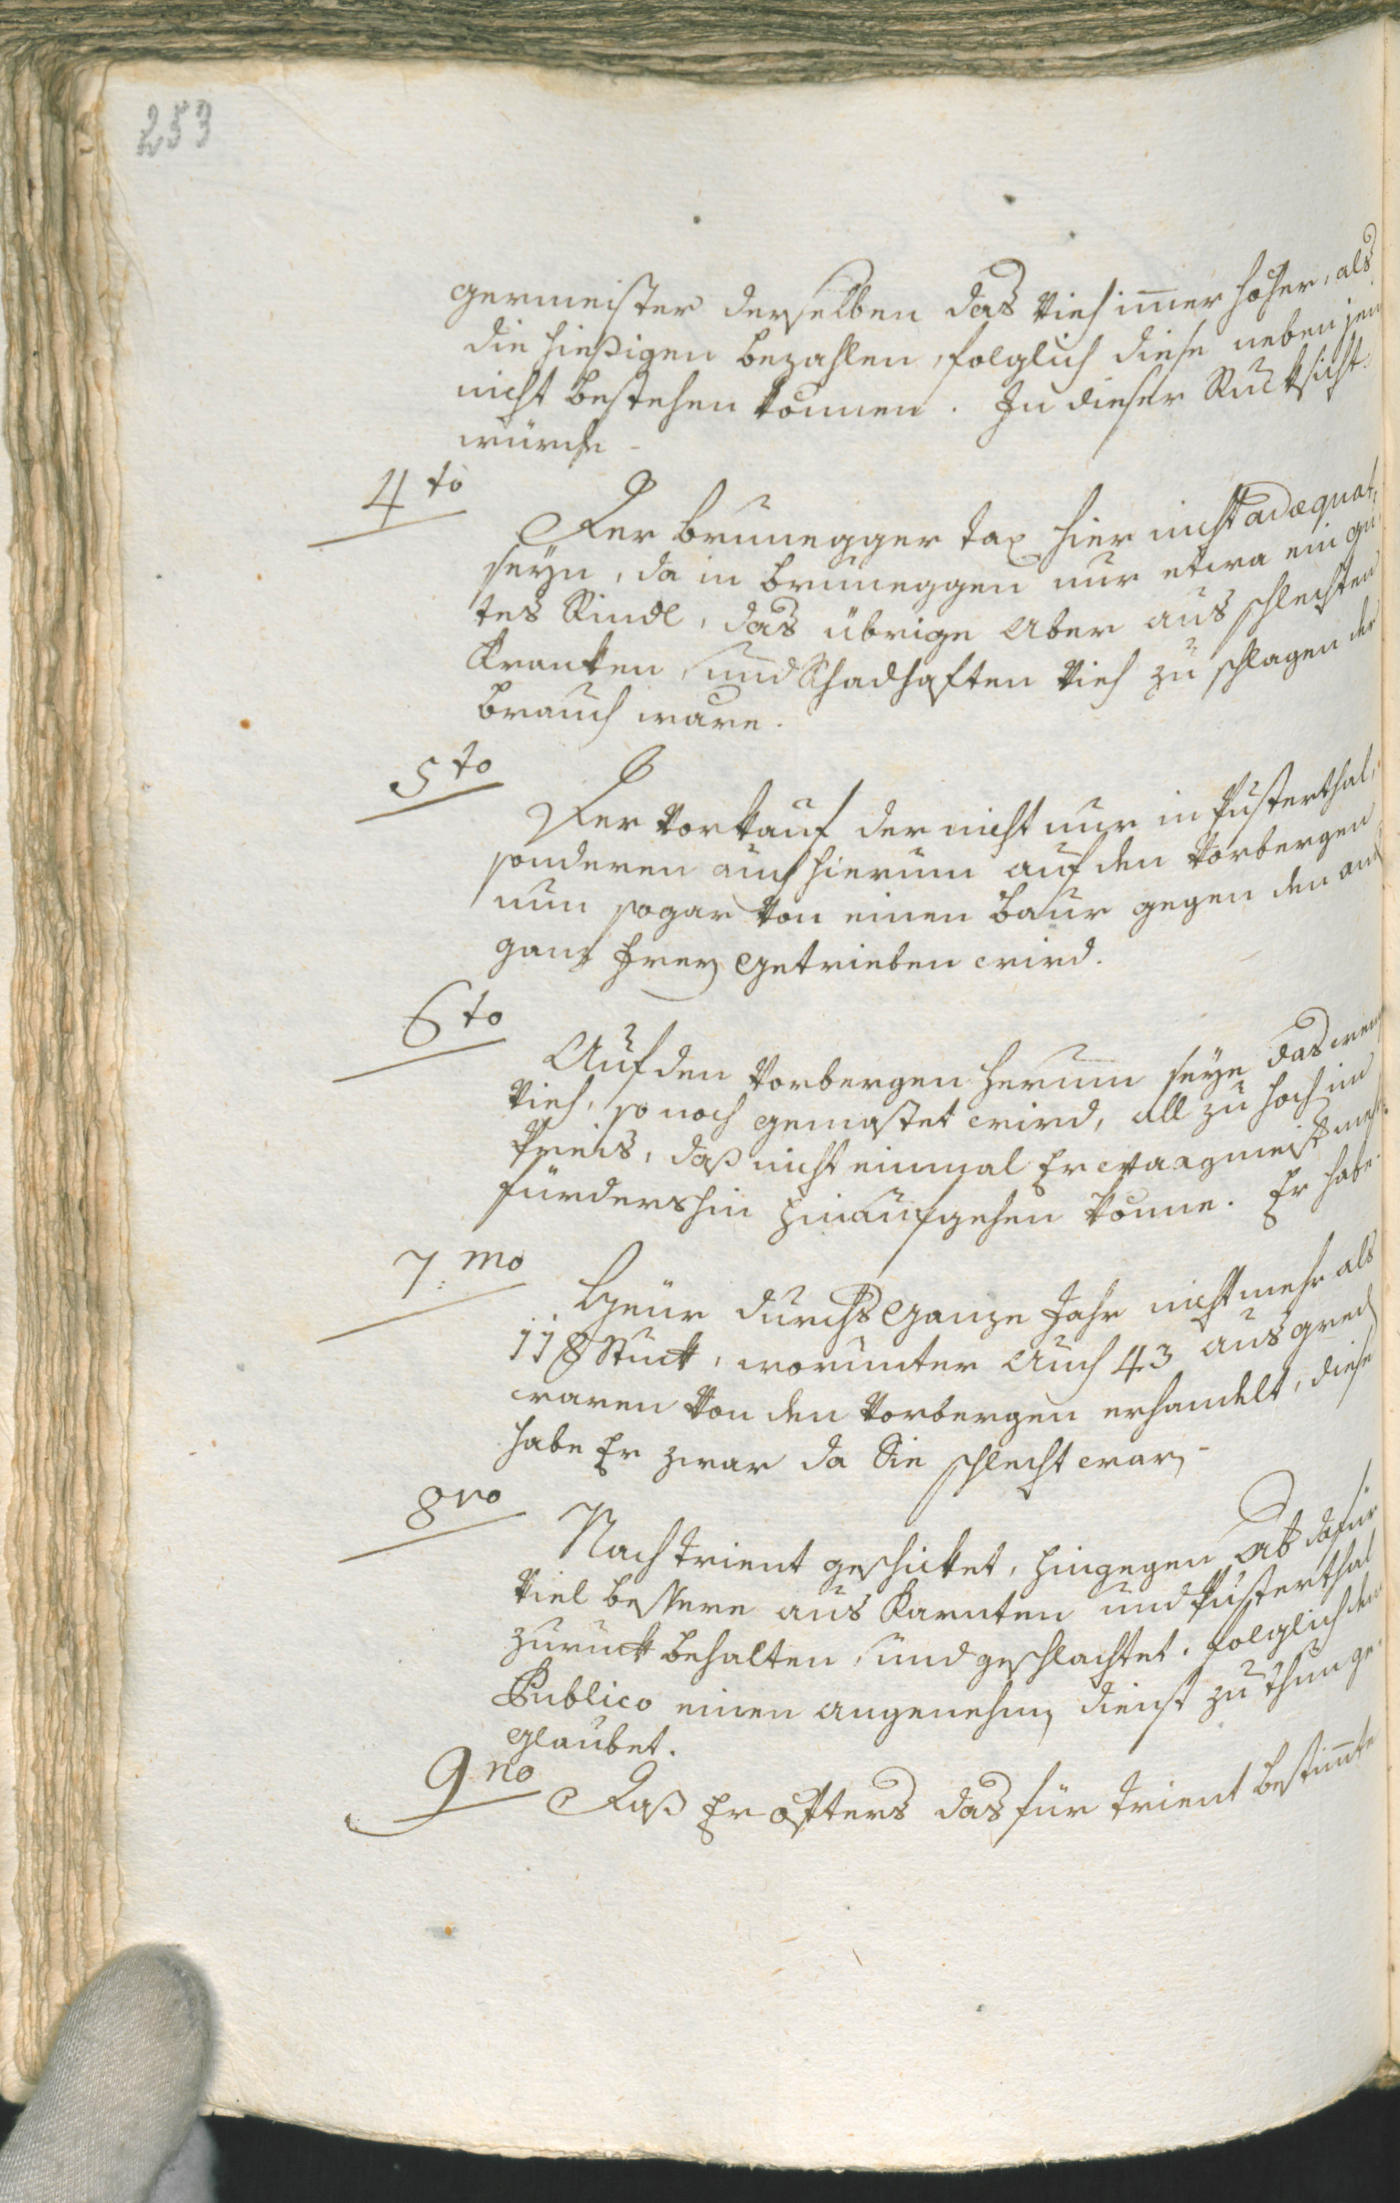 253
germeister derselben das Vieh im̄er höher, als
die hießigen bezahlen, folglich diese neben jen
nicht bestehen können. In dieser Rucksicht
würde -
4to
Der Brunegger tax hier nicht adæquat
seyn, da in Bruneggen nur etwa ein gu
tes Rindl, das übrige aber aus schlechten
Kranken, und schadhaften Vieh zu schlagen der
brauch ware.
5to
Der Vorkauf der nicht nur in Pusterthal,
sonderen auch hierum auf den Vorbergen
nun sogar von einen Baur gegen den and
ganz frey getrieben wird.
6to
Auf den Vorbergen herum seye das wenige
Vieh, so noch gemästet wird, all zu hoch im
Preis, daß nicht einmal Er
fürdershin hinaufgehen könne. Er habe
7:mo
Heür durchs ganze Jahr nicht mehr als
118 Stuck, worunter auch 43 aus
waren von den Vorbergen erhandelt, diese
habe Er zwar da Sie schlecht war,
8vo
Nach Trient geschicket, hingegen ab dafür
viel bessere aus Karnten und Pusterthal
zuruck behalten, und geschlachtet. folglich den
Publico einen angenehm dienst zu thun ge
glaubet.
9no
Daß Er öfters das für Trient bestim̄te